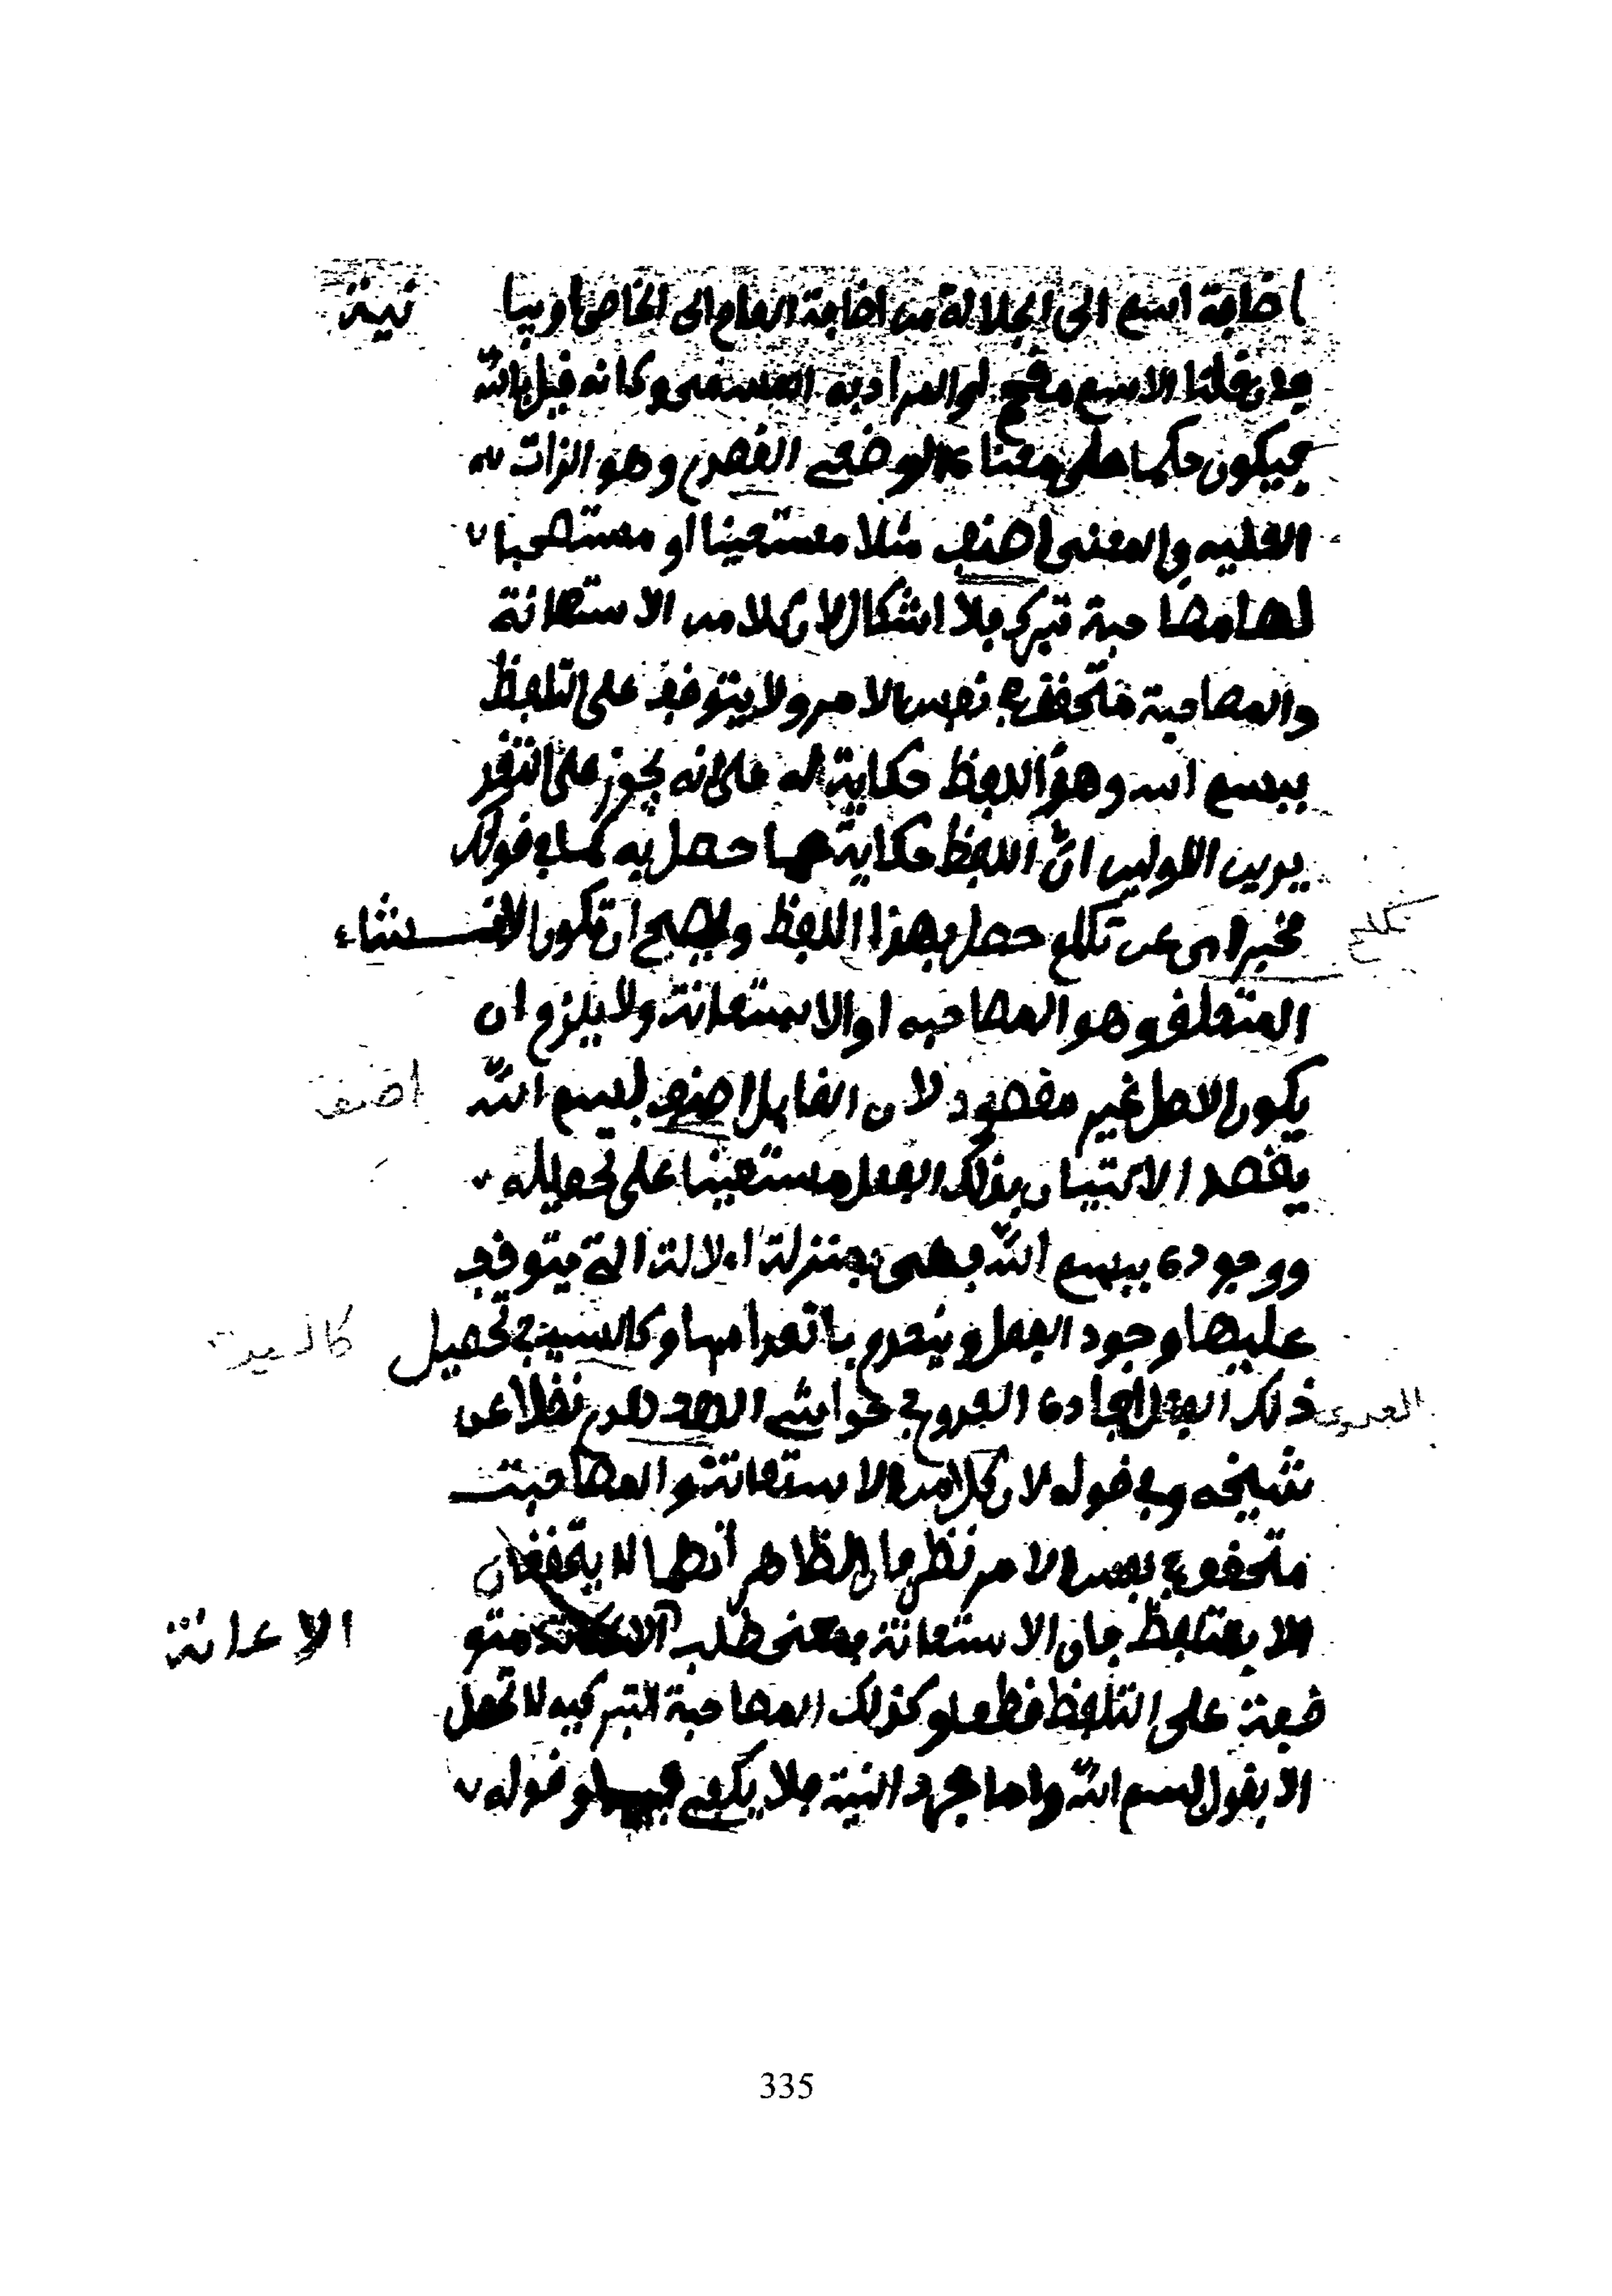 اضافة اسم الى الجلالة من اضافة العام الى الخاص او بيا نية
فان قلنا الاسم مقحم او المراد به المسمى وكانه قيل بالله
فيكون حكما على معناه الوضعي القصدي وهو الذات
العليه والمعنى اصنف مثلا مستعينا او مستصحبا
لها مصاحبة تبرك فلا اشكال لان كلا من الاستعانة
والمصاحبة متحقق في نفس الامر ولا يتوقف على التلفظ
ببسم الله وهذا اللفظ حكاية له على انه يجوز على التقد
يرين الاولين ان اللفظ حكاية عما حصل به كما في قولك
تكلم مخبرا عن تكلم حصل بهذا اللفظ ويصح ان تكون لانشاء
المتعلق وهو المصاحبه او الاستعانة ولا يلزم ان
يكون الاصل غير مقصود لان القايل اصنف بسم الله اصنف
يقصد الاتيان بذلك الفعل مستعينا على تحصيله
ووجوده ببسم الله فهي بمنزلة الالة التي يتوقف
عليها وجود الفعل وينعدم بانعدامها وكالسبب في تحصيل
ذلك الفعل افاده العدوي في حواشي نقلا عن
شيخه وفي قوله لان كلا من الاستعانة والمصاحبت
متحقق في نفس الامر نظر فان الظاهر انهما لا يتحققان
الا بالتلفظ فان الاستعانة بمعنى طلب الاعانة متو
قفة على التلفظ قطعا وكذلك المصاحبة التبركيه لا تحصل
الا بقول بسم الله واما مجرد النية فلا يكفي وقوله
335